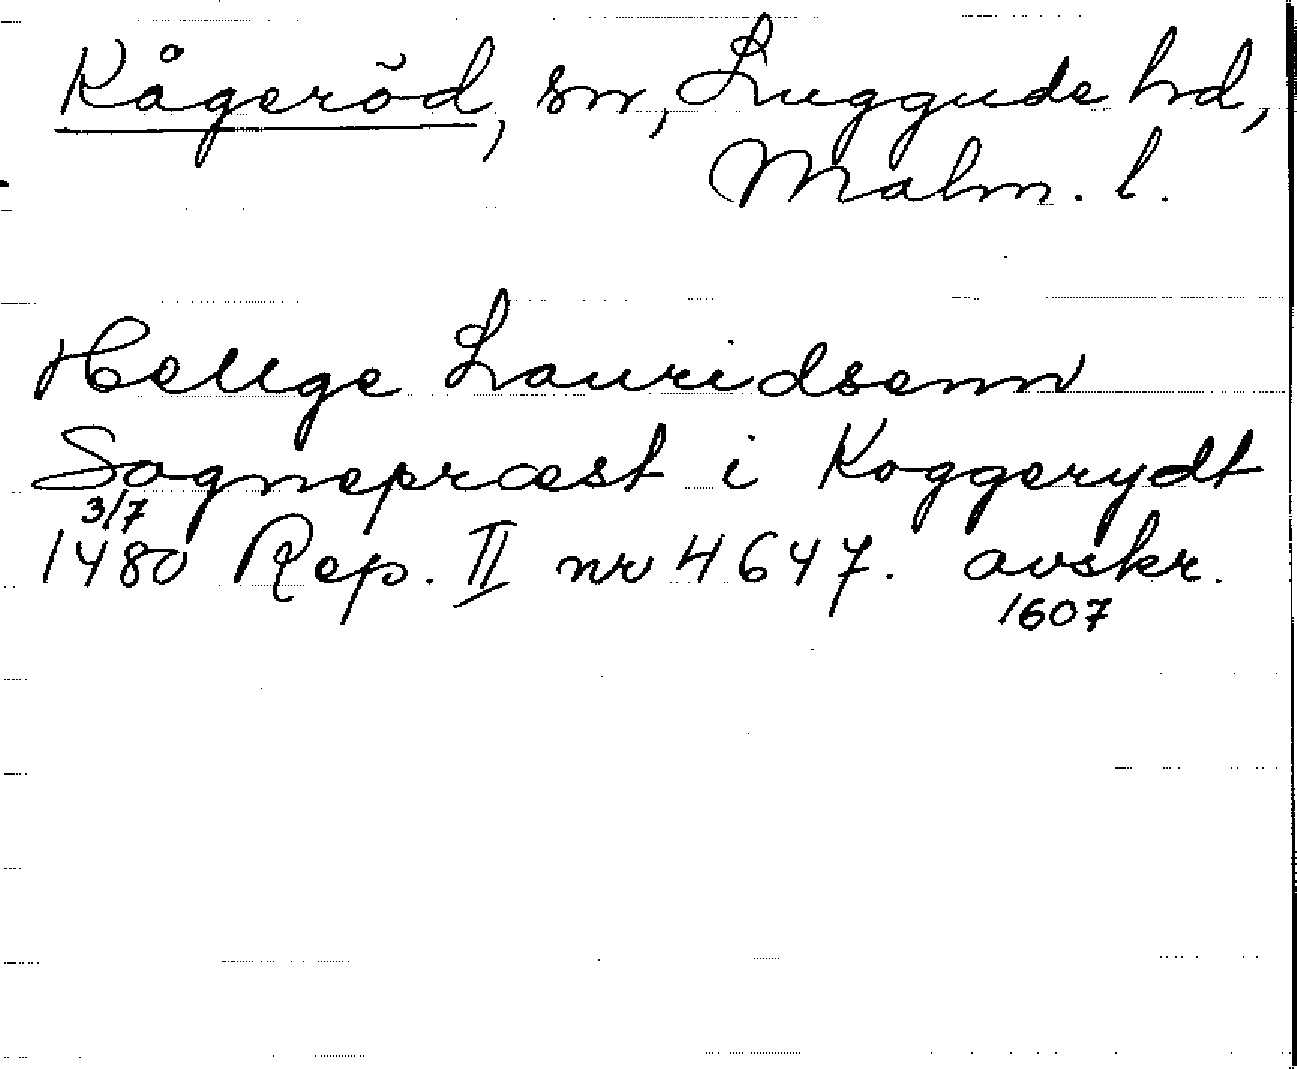 Kågeröd, sn, Luggude hd,
Malm. l.
Hellge Lauridsenn
Sognepræst i Koggerydt
3/7
1480 Rep. II nr 4647. avskr.
1607